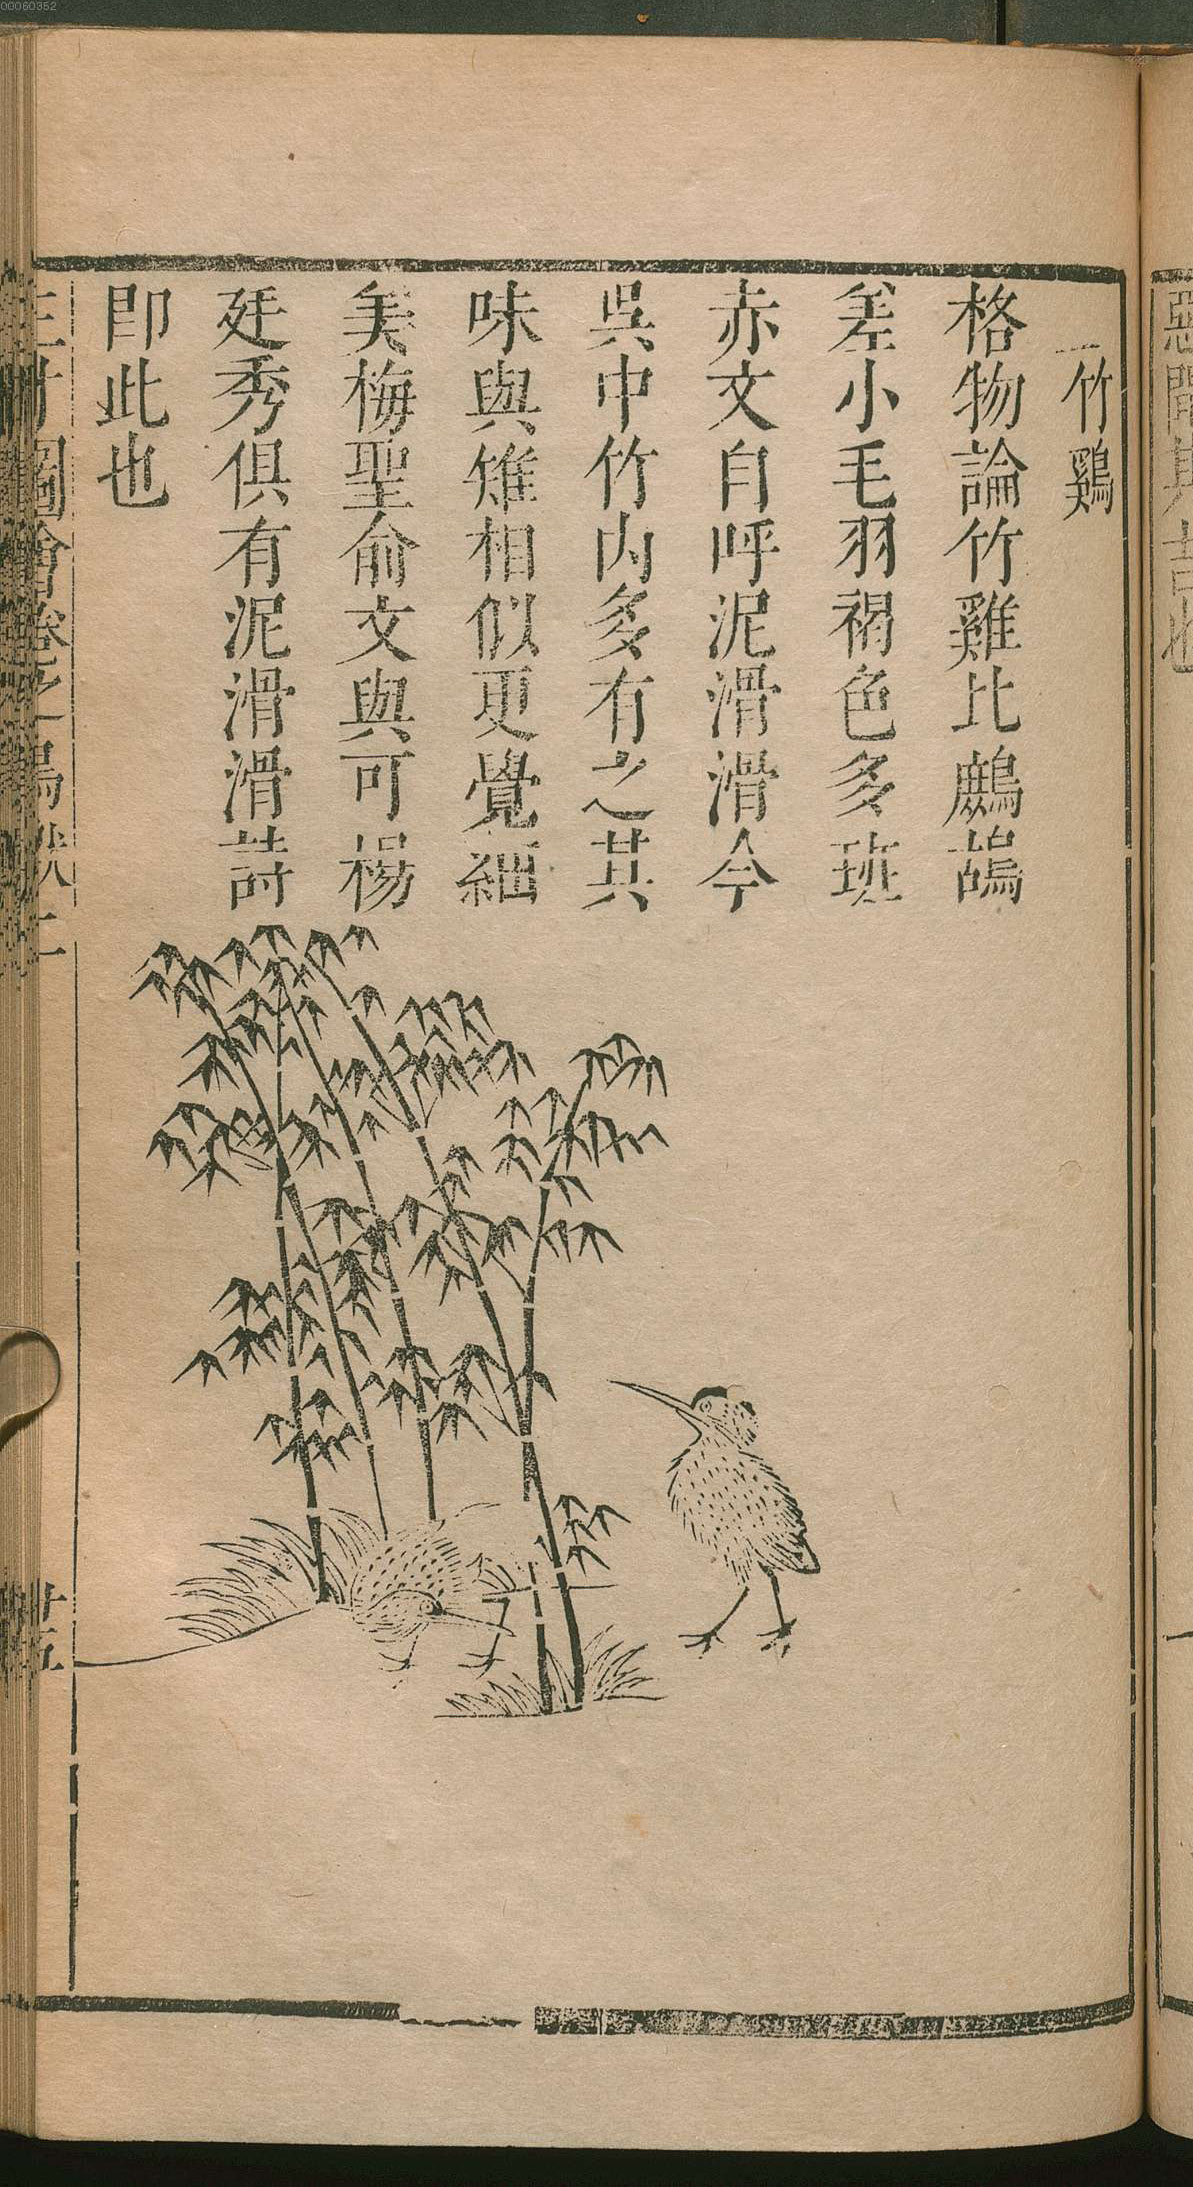 竹鷄
格物論竹雞比鷓鴣
差小毛羽褐色多班
赤文自呼泥滑滑今
吳中竹内多有之其
味與雉相似更覺細
美梅聖俞文與可楊
廷秀俱有泥滑滑詩
即此也
三才圖會卷之一鳥獸二
00060352